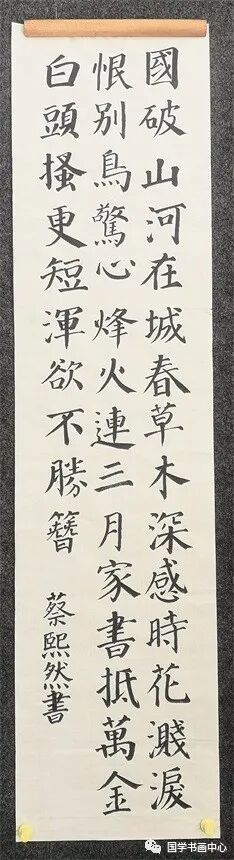 國破山河在城春草木深感時花濺淚
恨别鳥驚心烽火連三月家書抵萬金
白頭搔更短渾欲不勝簪
蔡熙然書
国学书画中心